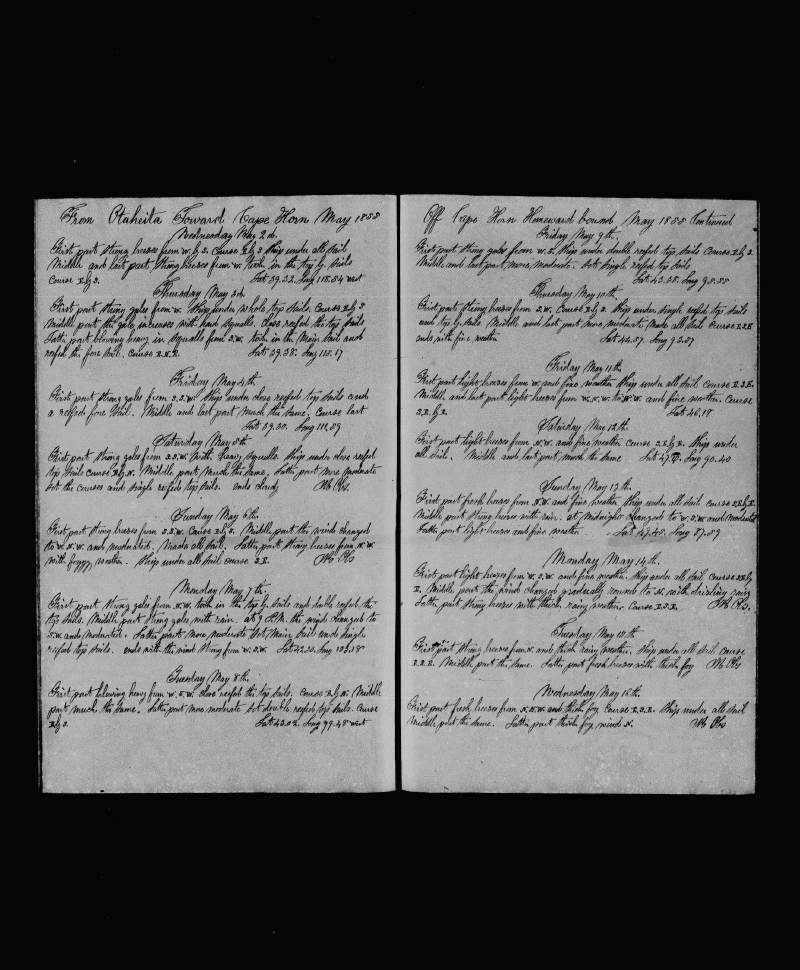 From Otaheita Toward Cape Horn May 1855
Wednesday May 2d.
First part strong breezes from W. by S. Course E by S Ship under all sail
Middle and last part strong breezes from W. took in the top g. sails
Course E by S. Lat 39.32. Long 118.54 west
Thursday May 3d.
First part strong gales from W. Ship under whole top sails. Course E by S
Middle part the gale increases with hard squalls. close reefed the top sails
Latter part blowing heavy in squalls from S.W. took in the Main sail and
reefed the fore sail. Course E.N.E. Lat 39.38. Long 115.17
Friday May 4th
First part strong gales from S.S.W. Ship under close reefed top sails and
a reefed fore sail. Middle and last part much the same. Course last
Lat 39.20. Long 111.59
Saturday May 5th
First part strong gales from S.S.W. With heavy squalls. Ship under close reefed
top sails Course E by N. Middle part, much the same, Latter part more moderate
set the courses and single reefed top sails. ends cloudy No Obs.
Sunday May 6th
First part strong breezes from S.S.W. Course E by S. Middle part the wind changed
to W.N.W. and moderated. Made all sail. Latter part strong breezes from N.W.
with foggy weather. Ship under all sail course S.E. No Obs
Monday May 7th.
First part strong gales from N.W. took in the top g. sails and double reefed the
top sails. Middle part strong gales with rain. at 9 P.M. the wind changed to
S.W. and moderated. Latter part more moderate set Main sail and single
reefed top sails. ends with the wind strong from W.S.W. Lat 42.20. Long 103.18
Tuesday May 8th
First part blowing heavy from W.S.W. close reefed the top sails. Course E by N. Middle
part much the same. Latter part more moderate set double reefed top sails. Course
E by S. Lat 43.02. Long 99.48 west
Off Cape Horn Homeward bound May 1855 Continued
Friday May 9th.
First part strong gales from W.S. Ship under double reefed top sails Course E by S.
Middle and last part, more moderate. Set single reefed top sail
Lat 43.58. Long 95.55
Thursday May 10th.
First part strong breezes from S.W. Course E by S. Ship under single reefed top sails
and top g. sails. Middle and last part more moderate Made all sail Course E.S.E.
ends with fine weather Lat 44.57. Long 93.57
Friday May 11th
First part light breezes from W. and fine weather Ship under all sail Course E.S.E.
Middle and last part light breezes from W.N.W. to W.W. and fine weather. Course
S.E. by E. Lat 46.18
Saturday May 12th.
First part light breezes from N.W. and fine weather. Course S.E. by E. Ship under
all sail. Middle and last part much the same Lat 47. Long 90.40
Sunday May 13th.
First part fresh breezes from N.W. and fine weather. Ship under all sail Course S.E. by E.
Middle part strong breezes with rain. at, midnight changed to W.S.W. and moderated
Latter part light breezes and fine weather Lat 47.48. Long 87.59
Monday May 14th.
First part light breezes from W.S.W. and fine weather. Ship under all sail Course S.E. by
E. Middle part the wind changed gradually round to N. with drisling rain
Latter part strong breezes with thick rainy weather. Course E.S.E. No Obs.
Tuesday May 15th
First part strong breezes from N. and thick rainy weather. Ship under all sail Course
E.S.E. Middle part the same. Latter part fresh breezes with thick fog No Obs
Wednesday May 16th.
First part fresh breezes from N.N.W. and thick fog Course E.S.E. Ship under all sail
Middle, part the same. Latter part thick fog wind N. No Obs